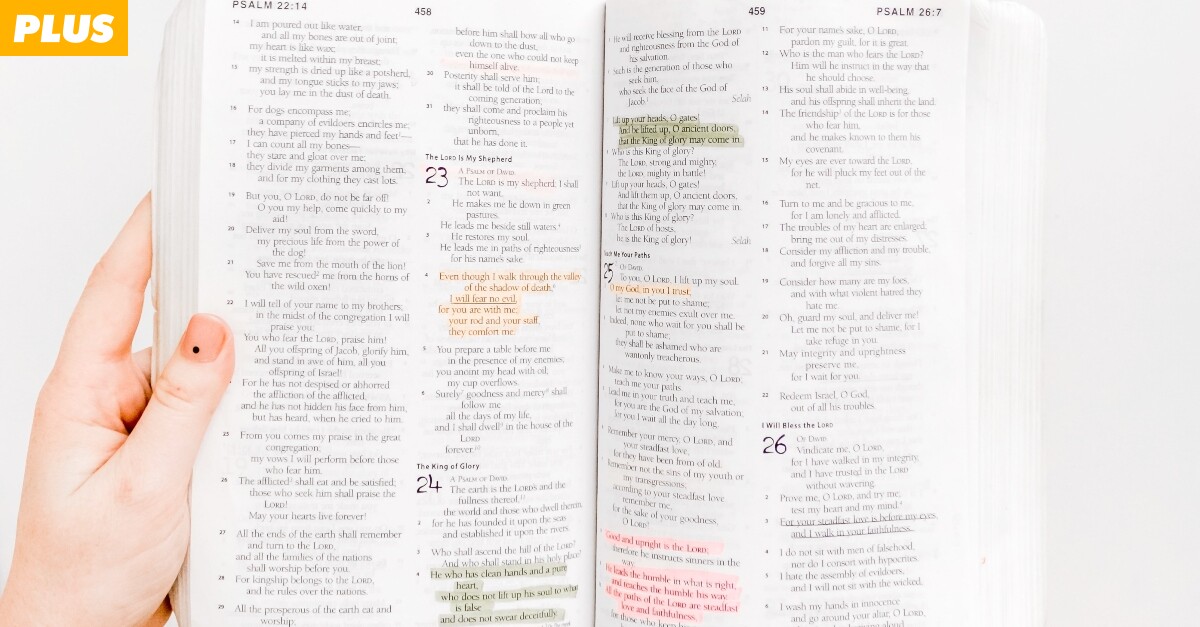 PLUS
PSALM 22:14
458
14 I am poured out like water,
and all my bones are out of joint;
my heart is like wax;
it is melted within my breast;
15 my strength is dried up like a potsherd,
and my tongue sticks to my jaws;
you lay me in the dust of death.
16 For dogs encompass me;
a company of evildoers encircles me;
they have pierced my hands and feet—
17 I can count all my bones—
they stare and gloat over me;
18 they divide my garments among them,
and for my clothing they cast lots.
19 But you, O LORD, do not be far off!
O you my help, come quickly to my
aid!
20 Deliver my soul from the sword,
my precious life from the power of
the dog!
21 Save me from the mouth of the lion!
You have rescued me from the horns of
the wild oxen!
22 I will tell of your name to my brothers;
in the midst of the congregation I will
praise you:
You who fear the LORD, praise him!
All you offspring of Jacob, glorify him,
and stand in awe of him, all you
offspring of Israel!
For he has not despised or abhorred
the affliction of the afflicted,
and he has not hidden his face from him,
but has heard, when he cried to him.
25 From you comes my praise in the great
congregation;
my vows I will perform before those
who fear him.
26 The afflicted shall eat and be satisfied;
those who seek him shall praise the
LORD!
May your hearts live forever!
27 All the ends of the earth shall remember
and turn to the LORD,
and all the families of the nations
shall worship before you.
28 For kingship belongs to the LORD,
and he rules over the nations.
29 All the prosperous of the earth eat and
worship;
before him shall bow all who go
down to the dust,
even the one who could not keep
himself alive.
30 Posterity shall serve him;
it shall be told of the Lord to the
coming generation;
31 they shall come and proclaim his
righteousness to a people yet
unborn,
that he has done it.
The LORD Is My Shepherd
23 A PSALM OF DAVID.
The LORD is my shepherd; I shall
not want.
2 He makes me lie down in green
pastures.
He leads me beside still waters.
3 He restores my soul.
He leads me in paths of righteousness
for his name's sake.
4 Even though I walk through the valley
of the shadow of death,
I will fear no evil,
for you are with me;
your rod and your staff,
they comfort me.
5 You prepare a table before me
in the presence of my enemies;
you anoint my head with oil;
my cup overflows.
6 Surely goodness and mercy shall
follow me
all the days of my life,
and I shall dwell in the house of the
LORD
forever.
The King of Glory
24 A PSALM OF DAVID.
The earth is the LORD's and the
fullness thereof,
the world and those who dwell therein,
2 for he has founded it upon the seas
and established it upon the rivers.
3 Who shall ascend the hill of the LORD?
And who shall stand in his holy place?
4 He who has clean hands and a pure
heart,
who does not lift up his soul to what
is false
and does not swear deceitfully.
459
PSALM 26:7
He will receive blessing from the LORD
and righteousness from the God of
his salvation.
Such is the generation of those who
seek him,
who seek the face of the God of
Jacob. Selah
Lift up your heads, O gates!
And be lifted up, O ancient doors,
that the King of glory may come in.
Who is this King of glory?
The LORD, strong and mighty,
the LORD, mighty in battle!
Lift up your heads, O gates!
And lift them up, O ancient doors,
that the King of glory may come in.
Who is this King of glory?
The LORD of hosts,
he is the King of glory! Selah
Teach Me Your Paths
25 OF DAVID.
To you, O LORD, I lift up my soul.
O my God, in you I trust;
let me not be put to shame;
let not my enemies exult over me.
Indeed, none who wait for you shall be
put to shame;
they shall be ashamed who are
wantonly treacherous.
Make me to know your ways, O LORD;
teach me your paths.
Lead me in your truth and teach me,
for you are the God of my salvation;
for you I wait all the day long.
Remember your mercy, O LORD, and
your steadfast love,
for they have been from of old.
Remember not the sins of my youth or
my transgressions;
according to your steadfast love
remember me,
for the sake of your goodness,
O LORD!
Good and upright is the LORD;
therefore he instructs sinners in the
way.
He leads the humble in what is right,
and teaches the humble his way.
All the paths of the LORD are steadfast
love and faithfulness,
for those who keep his
11 For your name's sake, O LORD,
pardon my guilt, for it is great.
12 Who is the man who fears the LORD?
Him will he instruct in the way that
he should choose.
13 His soul shall abide in well-being,
and his offspring shall inherit the land.
14 The friendship of the LORD is for those
who fear him,
and he makes known to them his
covenant.
15 My eyes are ever toward the LORD,
for he will pluck my feet out of the
net.
16 Turn to me and be gracious to me,
for I am lonely and afflicted.
17 The troubles of my heart are enlarged;
bring me out of my distresses.
18 Consider my affliction and my trouble,
and forgive all my sins.
19 Consider how many are my foes,
and with what violent hatred they
hate me.
20 Oh, guard my soul, and deliver me!
Let me not be put to shame, for I
take refuge in you.
21 May integrity and uprightness
preserve me,
for I wait for you.
22 Redeem Israel, O God,
out of all his troubles.
I Will Bless the LORD
26 OF DAVID.
Vindicate me, O LORD,
for I have walked in my integrity,
and I have trusted in the LORD
without wavering.
2 Prove me, O LORD, and try me;
test my heart and my mind.
3 For your steadfast love is before my eyes,
and I walk in your faithfulness.
4 I do not sit with men of falsehood,
nor do I consort with hypocrites.
5 I hate the assembly of evildoers,
and I will not sit with the wicked.
6 I wash my hands in innocence
and go around your altar, O LORD,